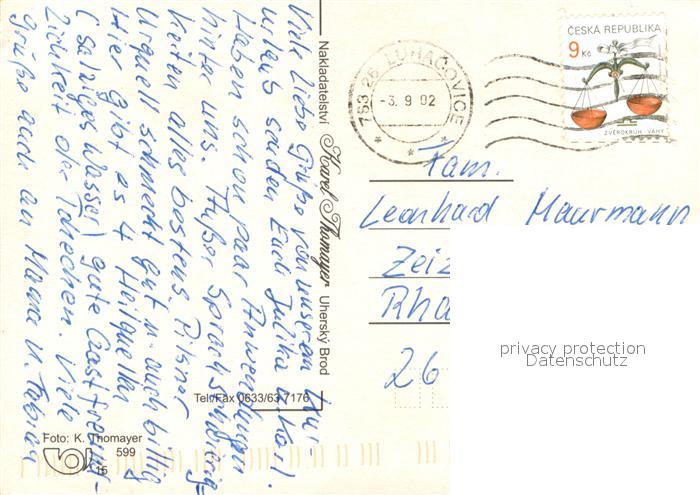 Viele Liebe Grüße von unserem Kur-
urlaub senden Euch Julika u. Karl
Haben schon paar Anwendungen
hinter uns. Außer Sprachschwierig-
keiten alles bestens. Pilsner
Urquell schmeckt gut u. auch billig
Hier gibt es 4 Heilquellen
(salziges Wasser) gute Gastfreund-
lichkeit der Tschechen. Viele
Grüße auch an Mama u.
Nakladatelství Karel Thomayer Uherský Brod
Tel/Fax 0633/63 7176
Foto: K. Thomayer
599
15
763 26 LUHAČOVICE
-3. 9. 02
ČESKÁ REPUBLIKA
9 Kč
ZVĚROKRUH - VÁHY
Fam.
Leonhard Maurmann
Zeiz
Rha
26
privacy protection
Datenschutz